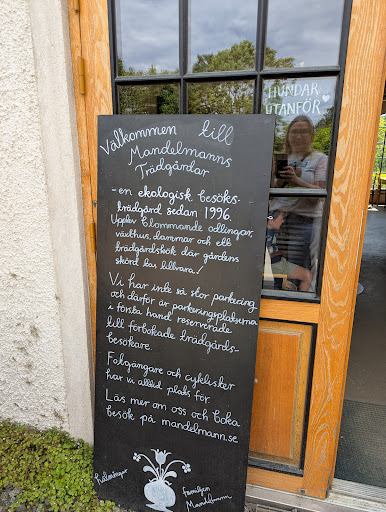 HUNDAR
UTANFÖR
Välkommen till
Mandelmanns
Trädgårdar
- en ekologisk besöks-
trädgård sedan 1996.
Upplev blommande odlingar,
växthus, dammar och ett
trädgårdskök där gårdens
skörd tas tillvara!
Vi har inte så stor parkering
och därför är parkeringsplatserna
i första hand reserverade
till förbokade trädgårds-
besökare.
Fotgängare och cyklister
har vi alltid plats för
Läs mer om oss och boka
besök på mandelmann.se
hälsningar
familjen
Mandelmann